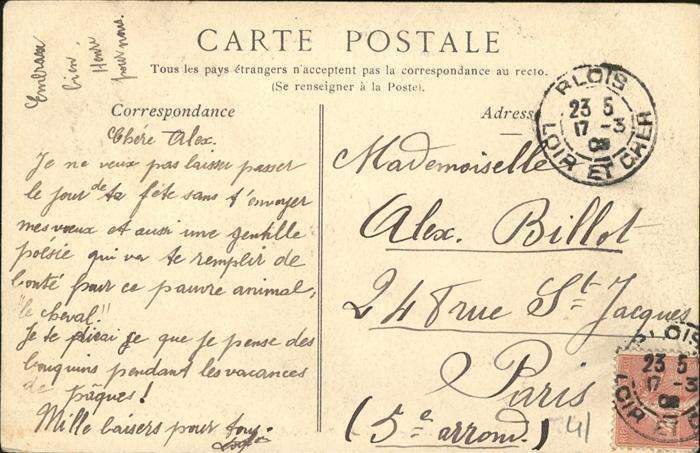 CARTE POSTALE
Tous les pays étrangers n'acceptent pas la correspondance au recto.
(Se renseigner à la Poste).
Correspondance
Adresse
Embrasse
bien
Henri
pour nous.
Chère Alex.
Je ne veux pas laisser passer
le jour de ta fête sans t'envoyer
mes vœux et aussi une gentille
poésie qui va te remplir de
bonté pour ce pauvre animal,
"le cheval!"
Je te dirai que je pense des
bouquins pendant les vacances
de pâques!
Mille baisers pour tous.
Mademoiselle
Alex. Billot
24 rue St Jacques
Paris
(5e arrond.)
41
BLOIS
23 5
17 -3
08
LOIR ET CHER
BLOIS
23 5
17 -3
08
LOIR ET